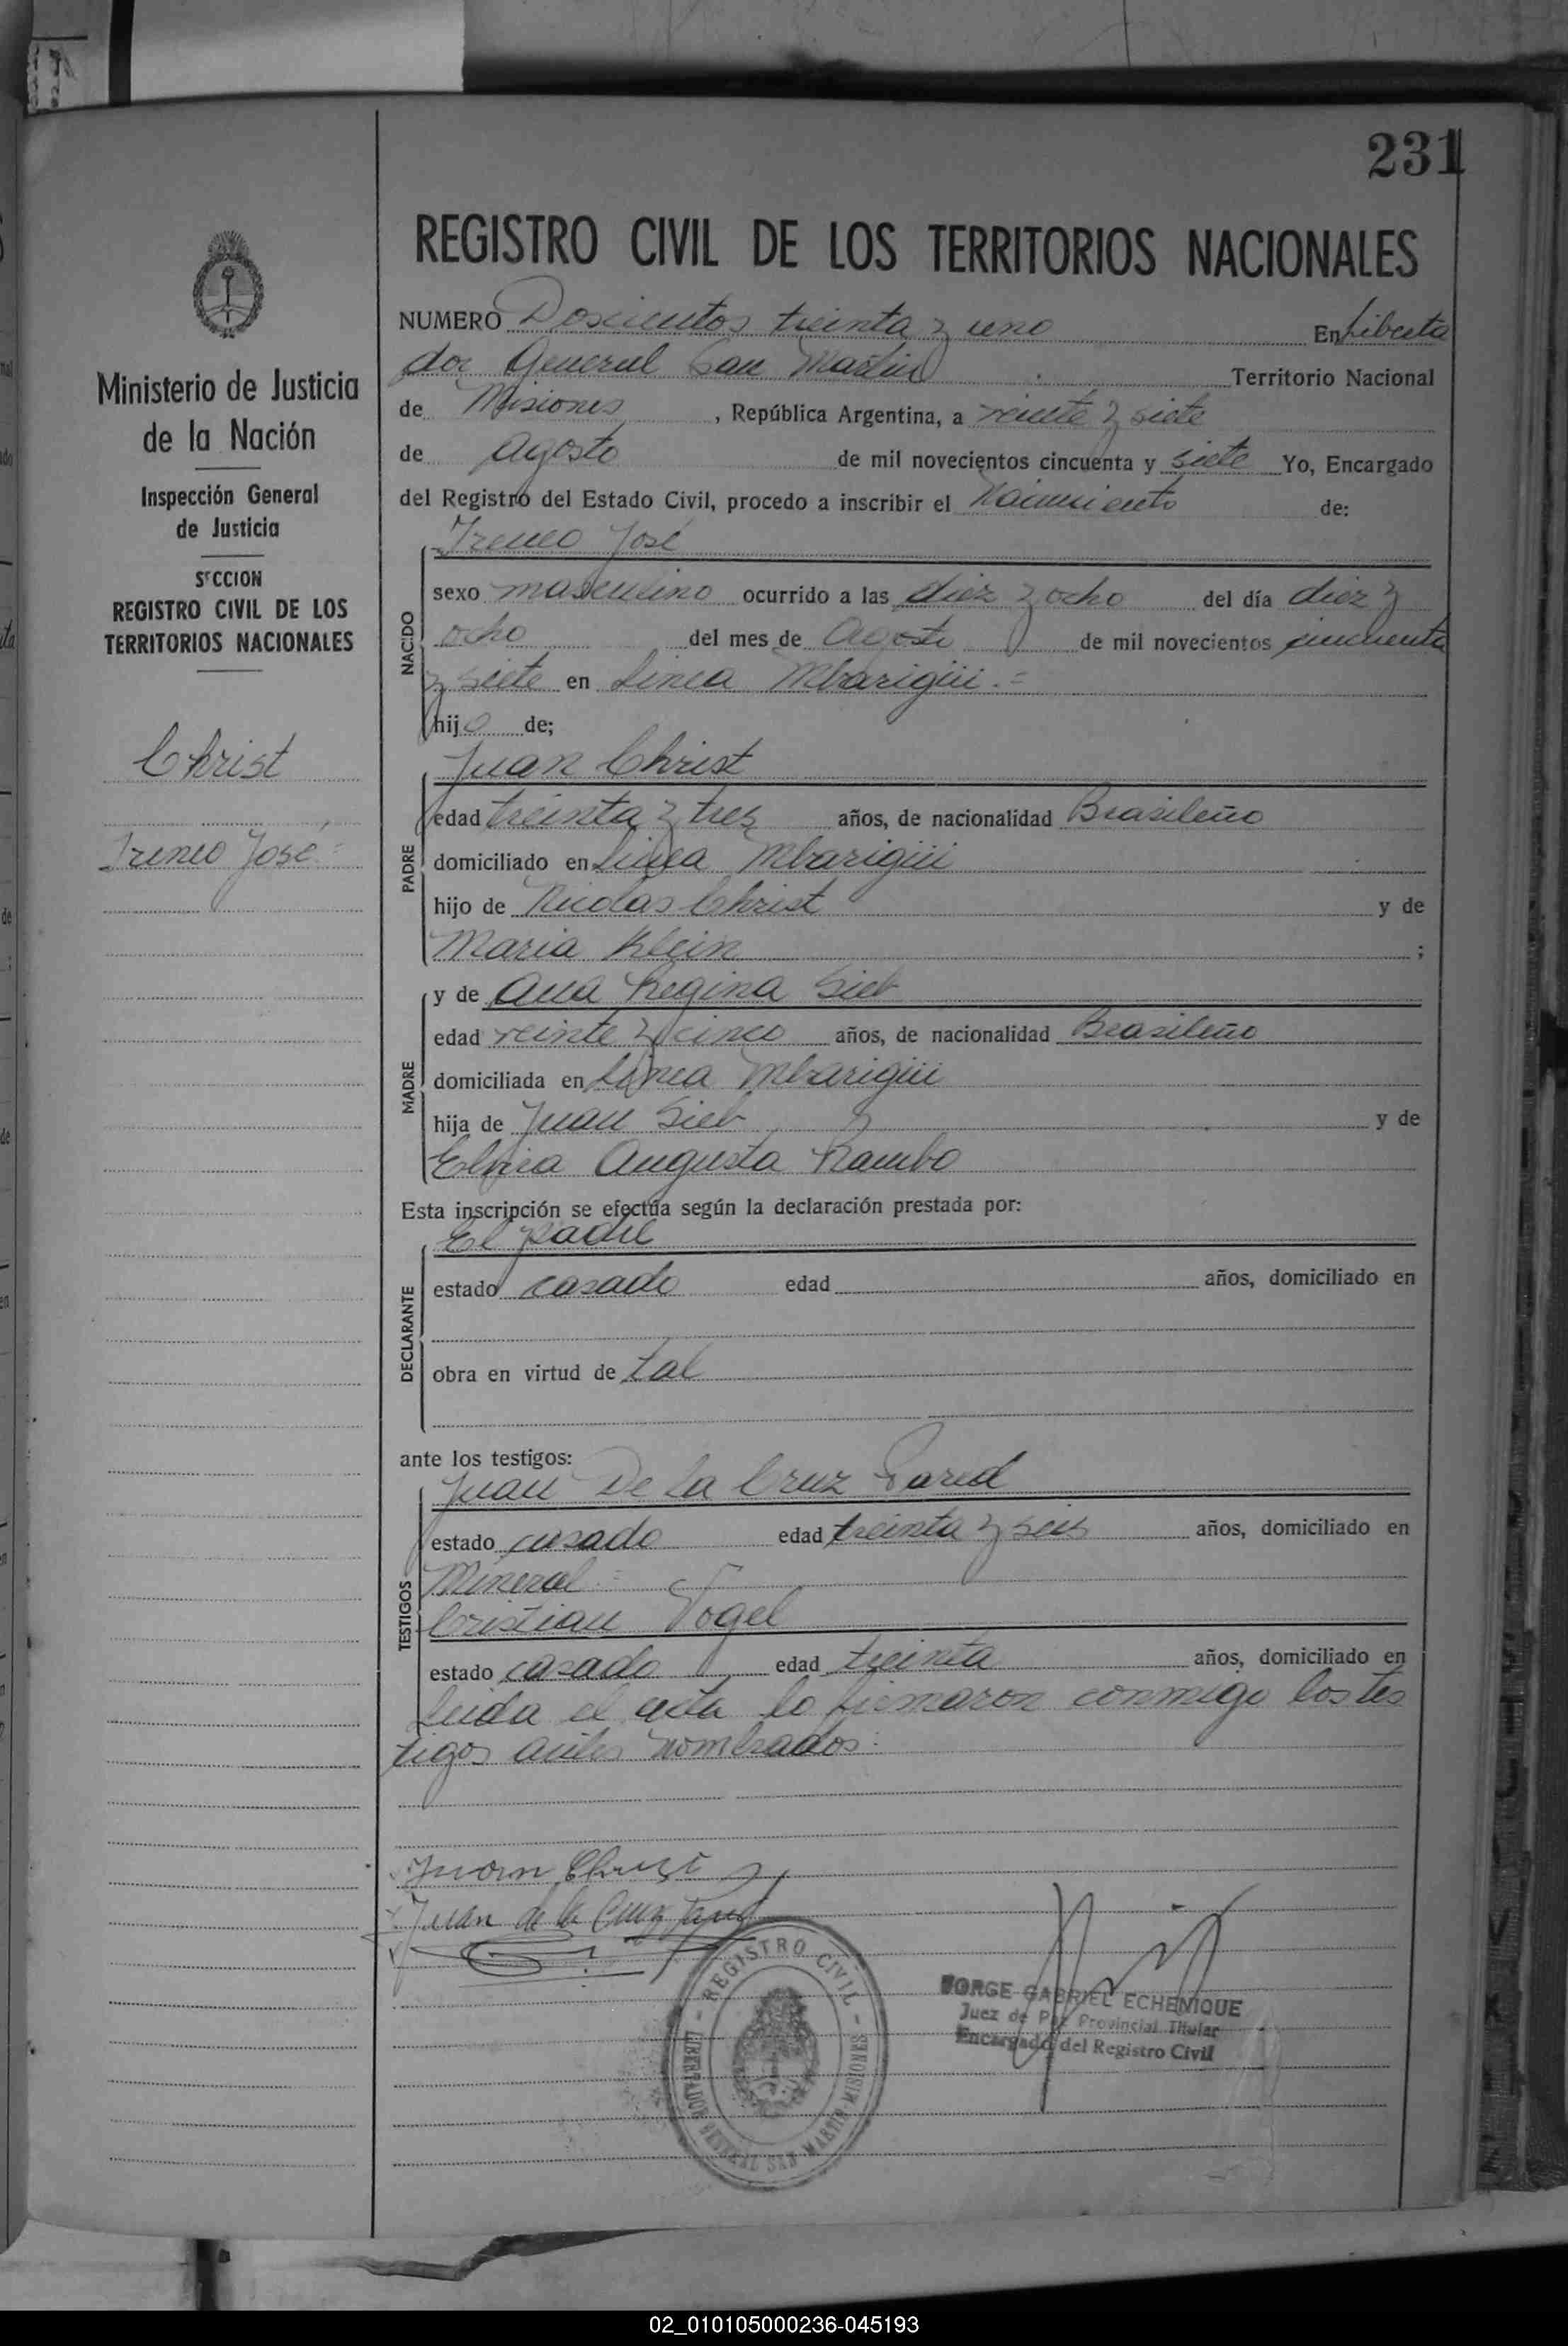 231
REGISTRO CIVIL DE LOS TERRITORIOS NACIONALES
NUMERO Doscientos treinta y uno En Liberta
dor General San Martin Territorio Nacional
de Misiones, República Argentina, a veinte y siete
de Agosto de mil novecientos cincuenta y siete Yo, Encargado
del Registro del Estado Civil, procedo a inscribir el Nacimiento de:
NACIDO
Ireneo José
sexo masculino ocurrido a las diez y ocho del día diez y
ocho del mes de Agosto de mil novecientos cincuenta
y siete en Linea Mbarigüi.=
hijo de;
PADRE
Juan Christ
edad treinta y tres años, de nacionalidad Brasileño
domiciliado en Linea Mbarigüi
hijo de Nicolas Christ y de
Maria Klein ;
MADRE
y de Ana Regina Sieb
edad veinte y cinco años, de nacionalidad Brasileño
domiciliada en Linea Mbarigüi
hija de Juan Sieb y de
Elvira Augusta Rambo
Esta inscripción se efectúa según la declaración prestada por:
DECLARANTE
El padre
estado casado edad años, domiciliado en
obra en virtud de tal
ante los testigos:
TESTIGOS
Juan De La Cruz Pared
estado casado edad treinta y seis años, domiciliado en
Mineral =
Cristian Vogel
estado casado edad treinta años, domiciliado en
Leida el acta lo firmaron conmigo los tes
tigos antes nombrados:
Juan Christ
Juan de la Cruz Pared
REGISTRO CIVIL
LIBERTADOR GENERAL SAN MARTIN MISIONES
JORGE GABRIEL ECHENIQUE
Juez de Paz Provincial Titular
Encargado del Registro Civil
Ministerio de Justicia
de la Nación
Inspección General
de Justicia
SECCION
REGISTRO CIVIL DE LOS
TERRITORIOS NACIONALES
Christ
Ireneo José =
02_010105000236-045193